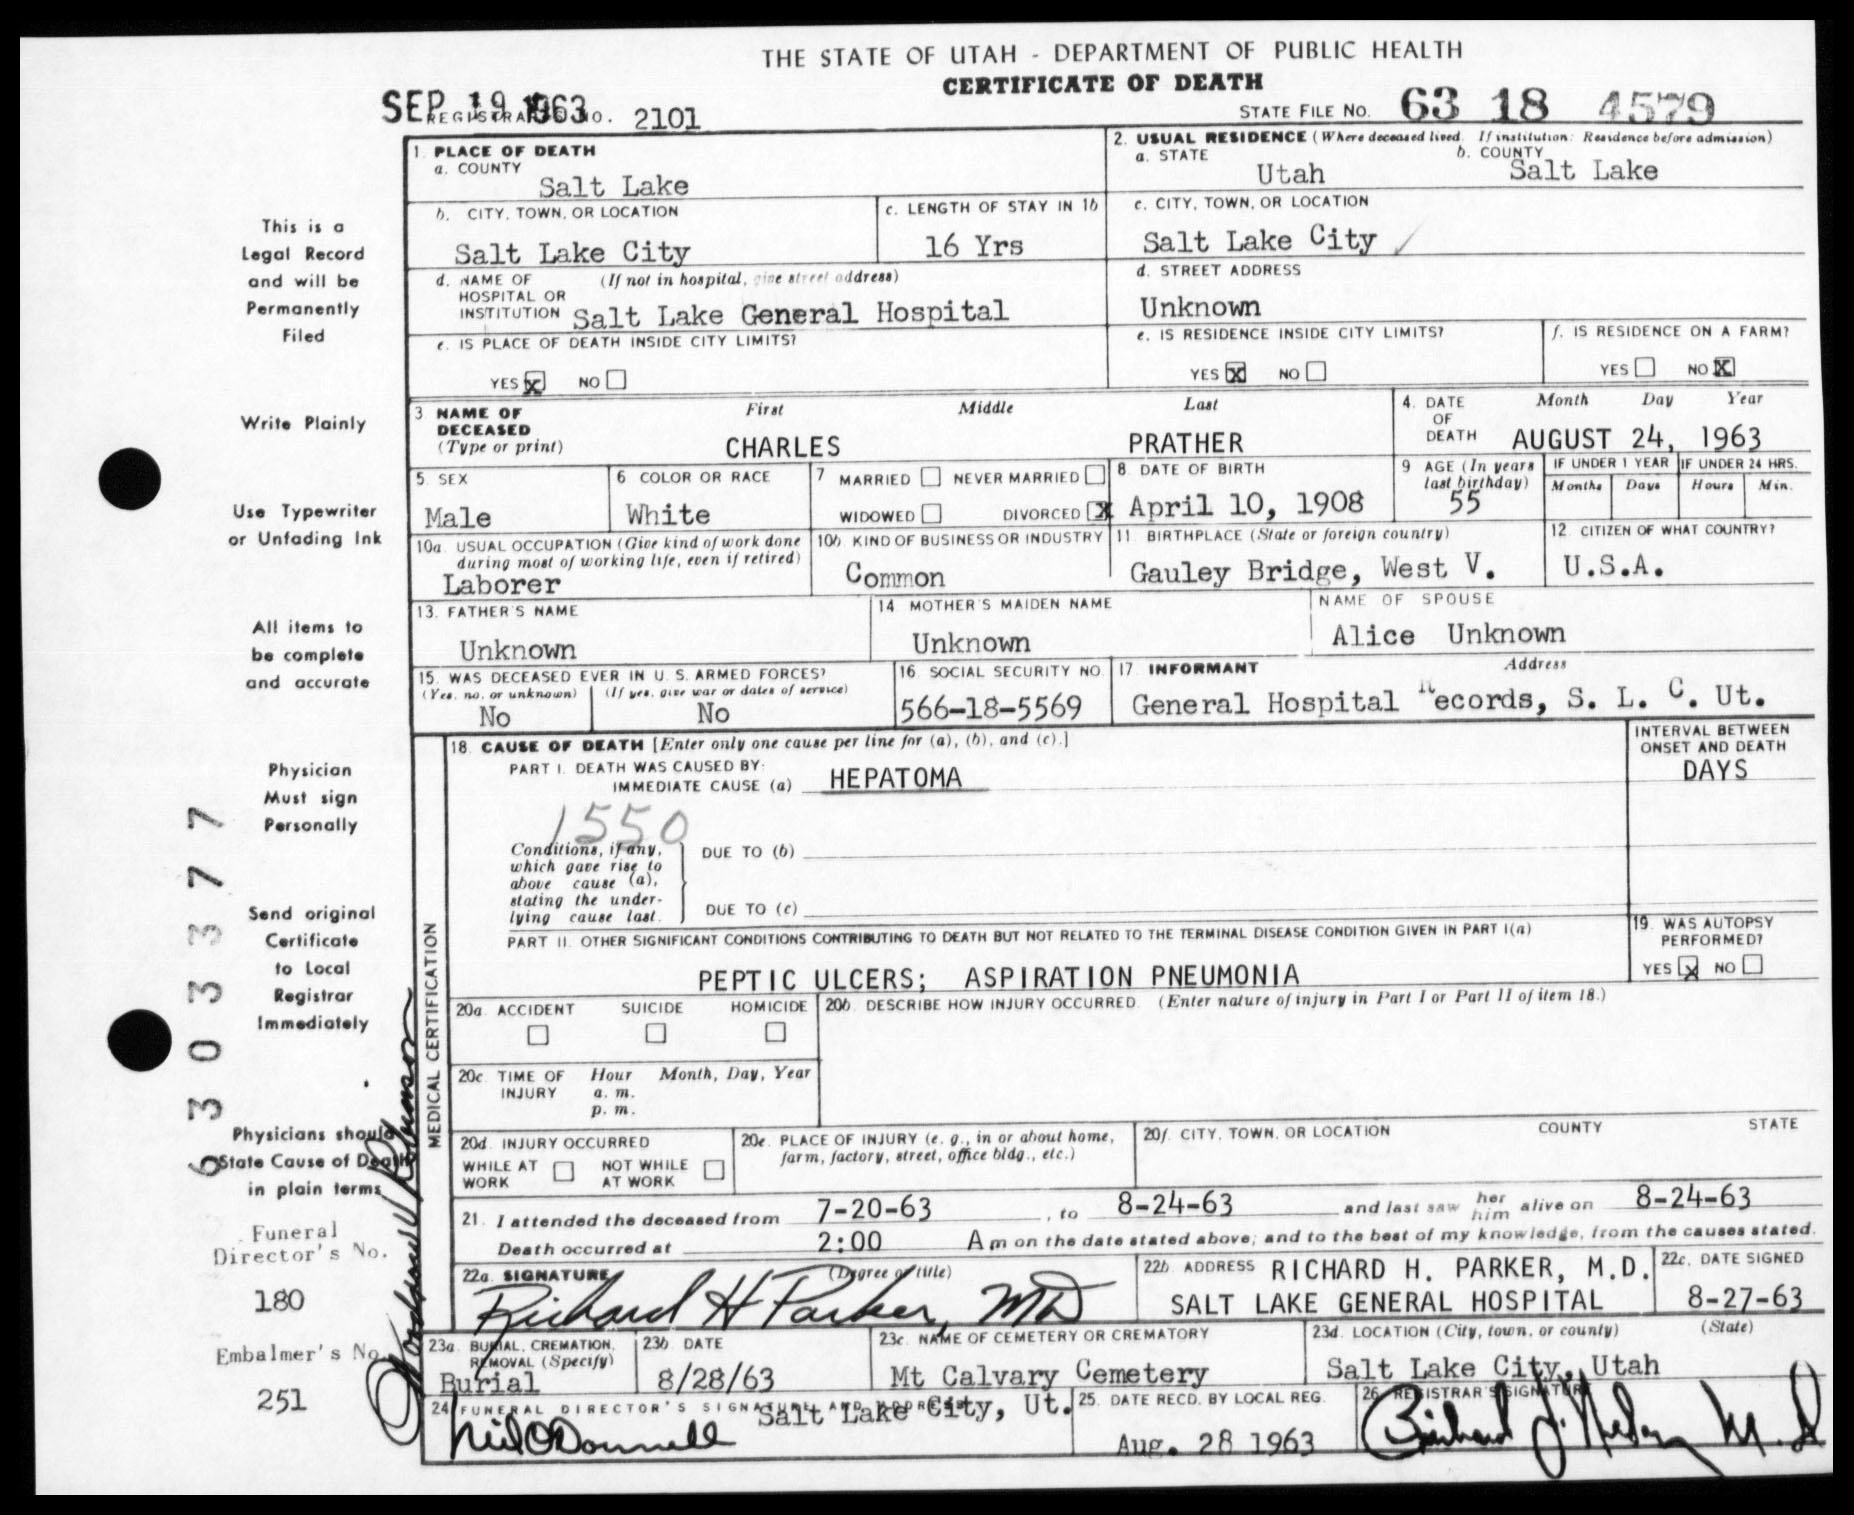 THE STATE OF UTAH - DEPARTMENT OF PUBLIC HEALTH
CERTIFICATE OF DEATH
SEP 19 1963
REGISTRAR'S NO. 2101
STATE FILE NO. 63 18 4579
1. PLACE OF DEATH
a. COUNTY
Salt Lake
2. USUAL RESIDENCE (Where deceased lived. If institution: Residence before admission)
a. STATE
Utah
b. COUNTY
Salt Lake
b. CITY, TOWN, OR LOCATION
Salt Lake City
c. LENGTH OF STAY IN 1b
16 Yrs
c. CITY, TOWN, OR LOCATION
Salt Lake City
d. NAME OF HOSPITAL OR INSTITUTION (If not in hospital, give street address)
Salt Lake General Hospital
d. STREET ADDRESS
Unknown
e. IS PLACE OF DEATH INSIDE CITY LIMITS?
YES X NO
e. IS RESIDENCE INSIDE CITY LIMITS?
YES X NO
f. IS RESIDENCE ON A FARM?
YES NO X
3 NAME OF DECEASED (Type or print)
First Middle Last
CHARLES PRATHER
4. DATE OF DEATH
Month Day Year
AUGUST 24, 1963
5. SEX
Male
6 COLOR OR RACE
White
7 MARRIED NEVER MARRIED
WIDOWED DIVORCED X
8. DATE OF BIRTH
April 10, 1908
9 AGE (In years last birthday)
55
IF UNDER 1 YEAR
Months Days
IF UNDER 24 HRS.
Hours Min.
10a. USUAL OCCUPATION (Give kind of work done during most of working life, even if retired)
Laborer
10b. KIND OF BUSINESS OR INDUSTRY
Common
11. BIRTHPLACE (State or foreign country)
Gauley Bridge, West V.
12. CITIZEN OF WHAT COUNTRY?
U.S.A.
13. FATHER'S NAME
Unknown
14 MOTHER'S MAIDEN NAME
Unknown
NAME OF SPOUSE
Alice Unknown
15. WAS DECEASED EVER IN U. S. ARMED FORCES?
(Yes, no, or unknown) (If yes, give war or dates of service)
No No
16. SOCIAL SECURITY NO.
566-18-5569
17 INFORMANT Address
General Hospital Records, S. L. C. Ut.
18. CAUSE OF DEATH [Enter only one cause per line for (a), (b), and (c).]
INTERVAL BETWEEN ONSET AND DEATH
PART I. DEATH WAS CAUSED BY:
IMMEDIATE CAUSE (a) HEPATOMA
DAYS
1550
Conditions, if any,
which gave rise to
above cause (a),
stating the under-
lying cause last.
DUE TO (b)
DUE TO (c)
PART II. OTHER SIGNIFICANT CONDITIONS CONTRIBUTING TO DEATH BUT NOT RELATED TO THE TERMINAL DISEASE CONDITION GIVEN IN PART I(a)
PEPTIC ULCERS; ASPIRATION PNEUMONIA
19. WAS AUTOPSY PERFORMED?
YES X NO
MEDICAL CERTIFICATION
20a. ACCIDENT SUICIDE HOMICIDE
20b. DESCRIBE HOW INJURY OCCURRED. (Enter nature of injury in Part I or Part II of item 18.)
20c. TIME OF INJURY
Hour Month, Day, Year
a. m.
p. m.
20d. INJURY OCCURRED
WHILE AT WORK NOT WHILE AT WORK
20e. PLACE OF INJURY (e. g., in or about home, farm, factory, street, office bldg., etc.)
20f. CITY, TOWN, OR LOCATION COUNTY STATE
21. I attended the deceased from 7-20-63, to 8-24-63 and last saw her him alive on 8-24-63
Death occurred at 2:00 A m on the date stated above; and to the best of my knowledge, from the causes stated.
22a. SIGNATURE (Degree or title)
Richard H Parker, MD
22b. ADDRESS RICHARD H. PARKER, M.D.
SALT LAKE GENERAL HOSPITAL
22c. DATE SIGNED
8-27-63
23a. BURIAL, CREMATION, REMOVAL (Specify)
Burial
23b. DATE
8/28/63
23c. NAME OF CEMETERY OR CREMATORY
Mt Calvary Cemetery
23d. LOCATION (City, town, or county) (State)
Salt Lake City, Utah
24. FUNERAL DIRECTOR'S SIGNATURE AND ADDRESS
Neil O'Donnell
Salt Lake City, Ut.
25. DATE RECD. BY LOCAL REG.
Aug. 28 1963
26. REGISTRAR'S SIGNATURE
This is a
Legal Record
and will be
Permanently
Filed
Write Plainly
Use Typewriter
or Unfading Ink
All items to
be complete
and accurate
Physician
Must sign
Personally
Send original
Certificate
to Local
Registrar
Immediately
Physicians should
State Cause of Death
in plain terms
Funeral
Director's No.
180
Embalmer's No.
251
6303377